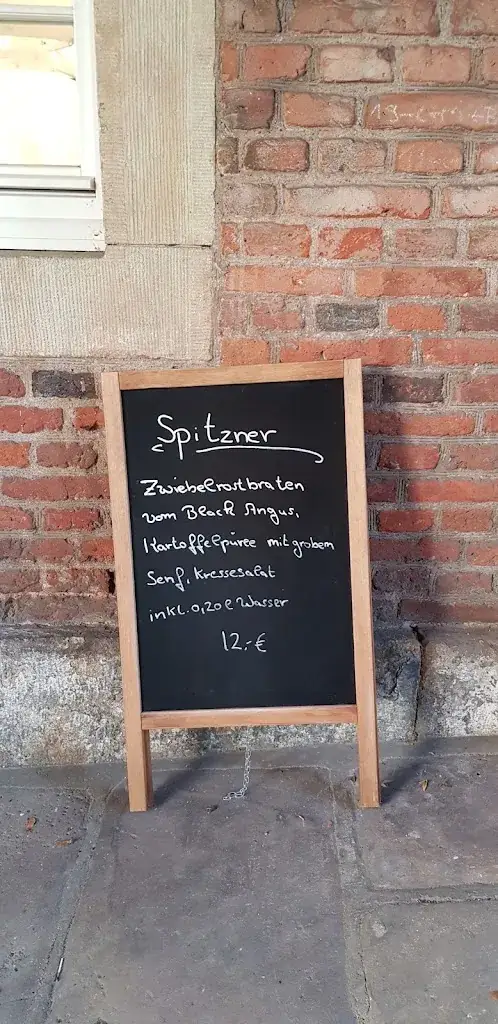 Spitzner
Zwiebelrostbraten
vom Black Angus,
Kartoffelpüree mit grobem
Senf, Kressesalat
inkl. 0,20 l Wasser
12,-€